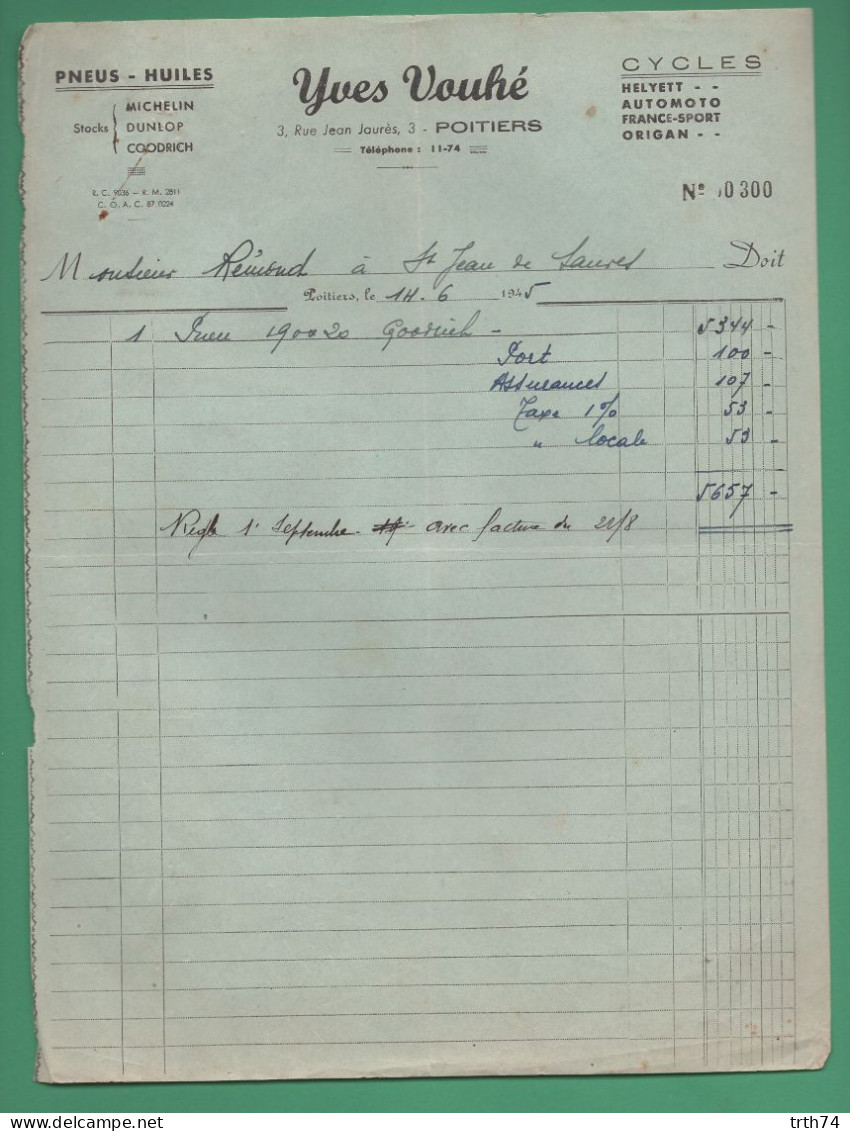 PNEUS - HUILES
Stocks
MICHELIN
DUNLOP
GOODRICH
R. C. 9036 – R. M. 2811
C. O. A. C. 87 0224
Yves Vouhé
3, Rue Jean Jaurès, 3 - POITIERS
Téléphone : 11-74
CYCLES
HELYETT - -
AUTOMOTO
FRANCE-SPORT
ORIGAN - -
Nº 0300
Monsieur Rémond à St Jean de Sauves Doit
Poitiers, le 14. 6 1945
1 Pneu 190x20 Goodrich - 5344 -
Port 100 -
Assurances 107 -
Taxe 1% 53 -
" locale 53 -
5657 -
Réglé 1er Septembre avec facture du 28/8
trth74